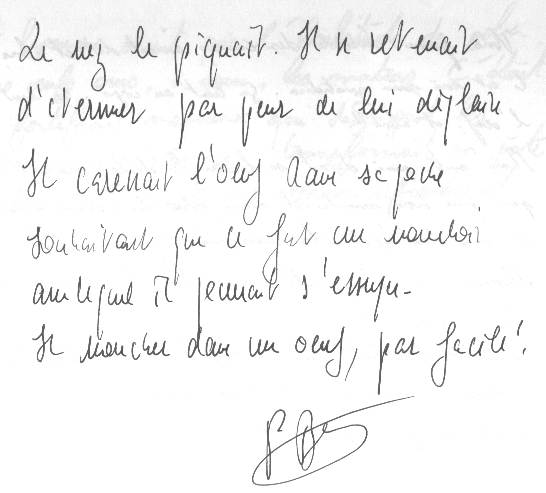 Le nez le piquait. Il se retenait
d'éternuer par peur de lui déplaire
Il caressait l'oeuf dans sa poche
souhaitant que ce fut un mouchoir
avec lequel il pouvait s'essuyer.
Il moucher dans un oeuf, pas facile!